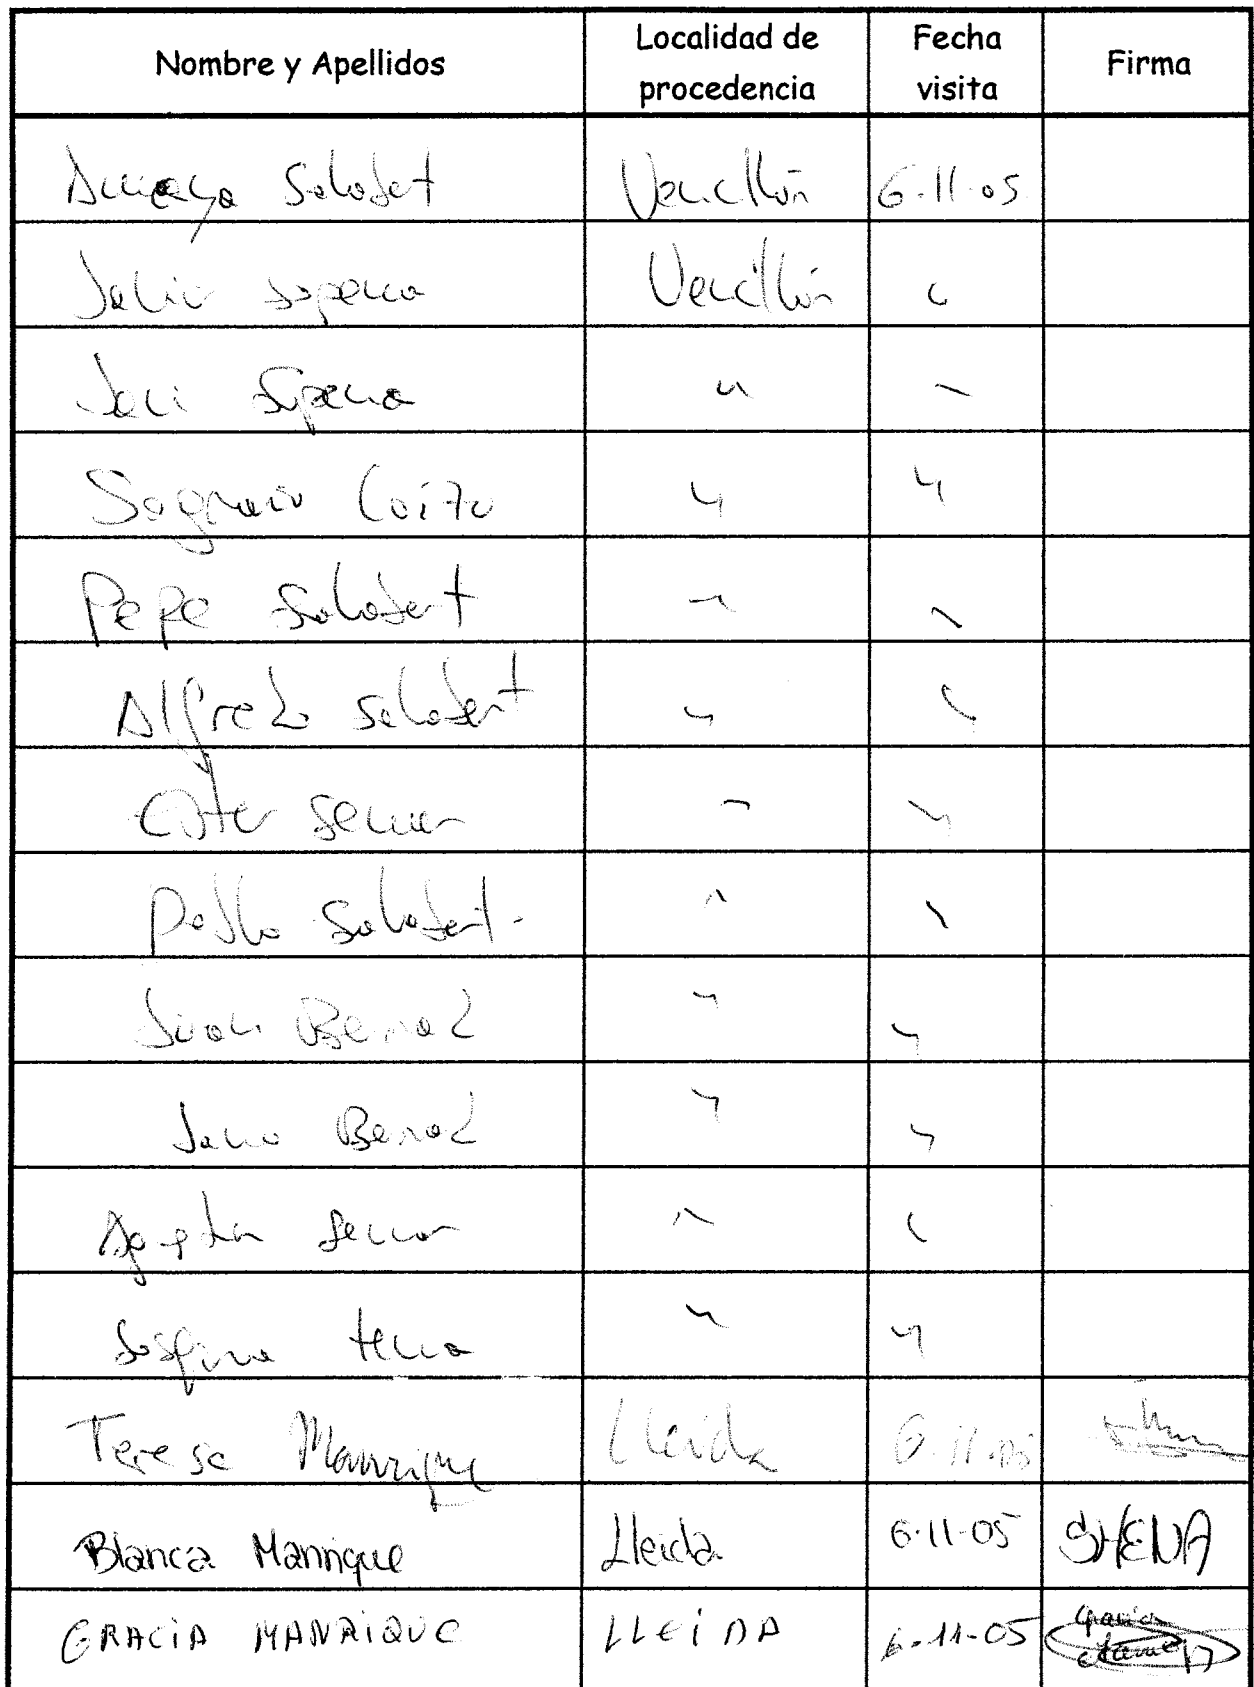 Nombre y Apellidos Localidad de procedencia Fecha visita Firma
Amaya Salafert Vencillón 6-11-05
Javier Sopena Vencillón "
Javi Sopena " "
Sagrario " "
Pepe Salafert " "
Alfredo Salafert " "
Ester " "
Pablo Salafert. " "
Juan Bernad " "
Bernad " "
" "
Josefina " "
Teresa Manrique Lleida 6-11-05
Blanca Manrique Lleida 6-11-05 SHENA
GRACIA MANRIQUE LLEIDA 6-11-05 Gracia